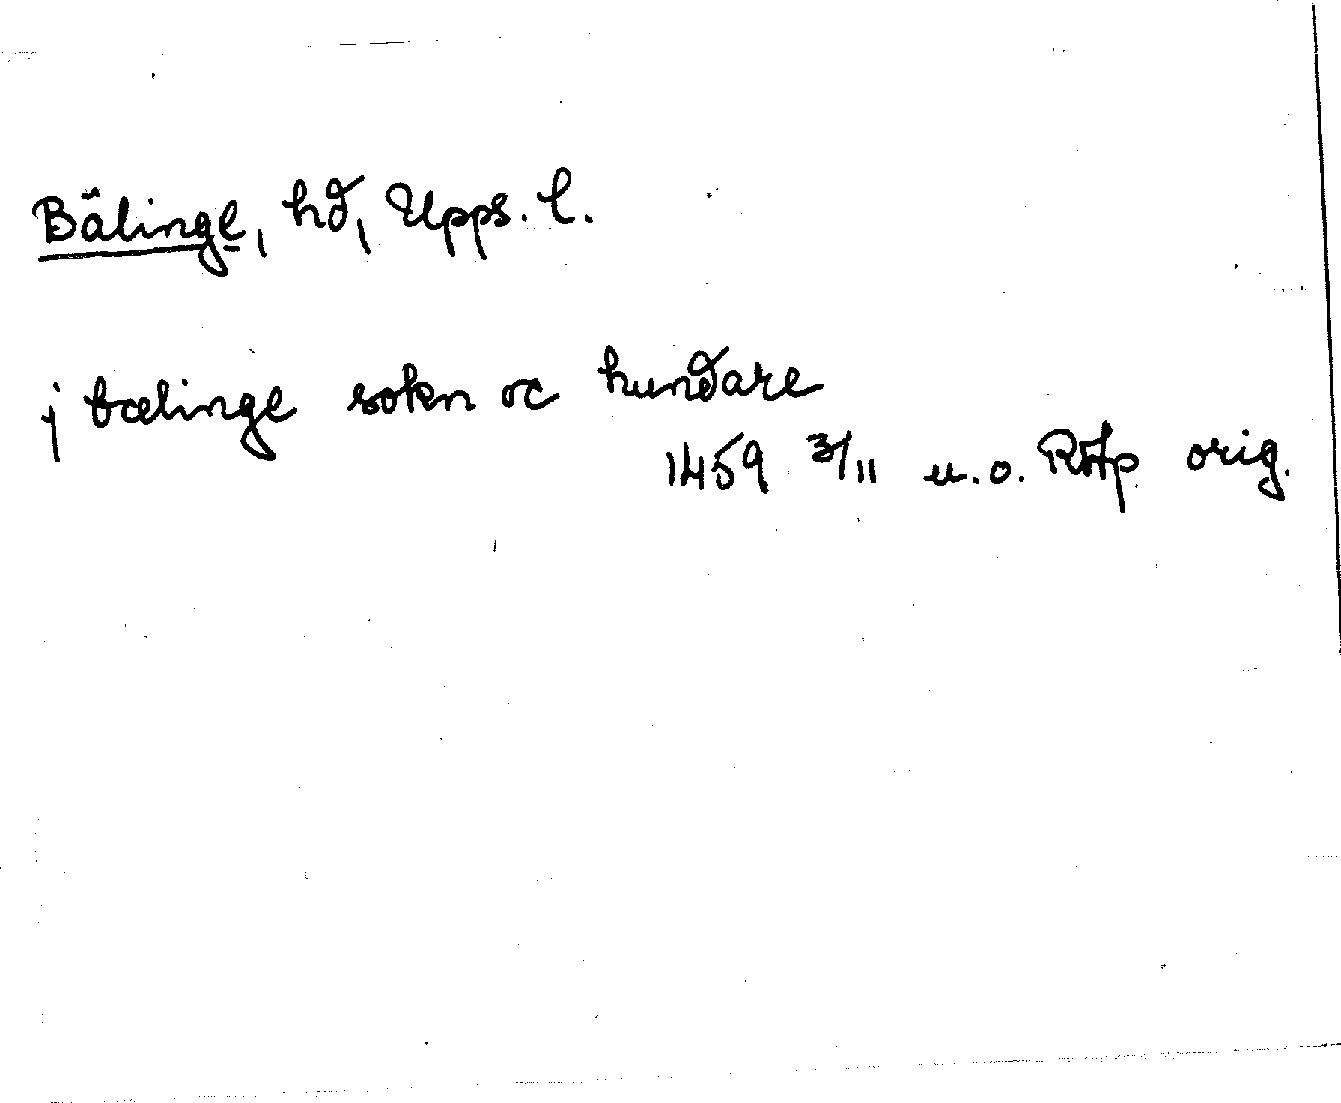 Bälinge, hd, Upps. l.
j bælinge sokn oc hundare
1459 3/11 u.o. RAp orig.